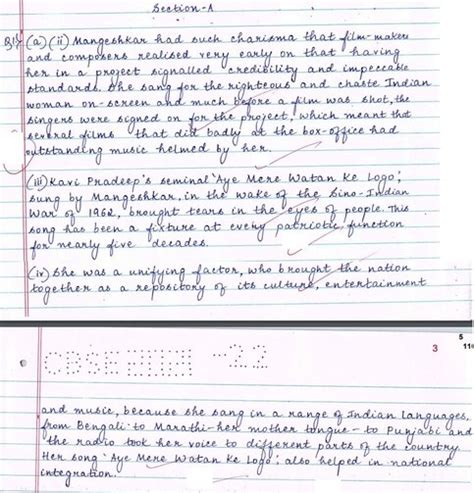 Section-A
Q1) (a) (ii) Mangeshkar had such charisma that film-makers
and composers realised very early on that having
her in a project signalled credibility and impeccable
standards. She sang for the righteous and chaste Indian
woman on-screen and much before a film was shot, the
singers were signed on for the project, which meant that
several films that did badly at the box-office had
outstanding music helmed by her.
(iii) Kavi Pradeep's seminal 'Aye Mere Watan Ke Logo',
sung by Mangeshkar, in the wake of the Sino-Indian
War of 1962, brought tears in the eyes of people. This
song has been a fixture at every patriotic function
for nearly five decades.
(iv) She was a unifying factor, who brought the nation
together as a repository of its culture, entertainment
CBSE -22
3
5
11
and music, because she sang in a range of Indian languages,
from Bengali to Marathi-her mother tongue- to Punjabi and
the radio took her voice to different parts of the country.
Her song 'Aye Mere Watan Ke Logo', also helped in national
integration.